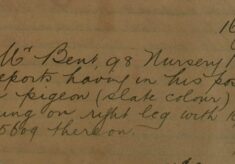 16
Mr Bent, 98 Nursery
reports having in his pos
a pigeon (slate colour)
ring on right leg with
5609 thereon.